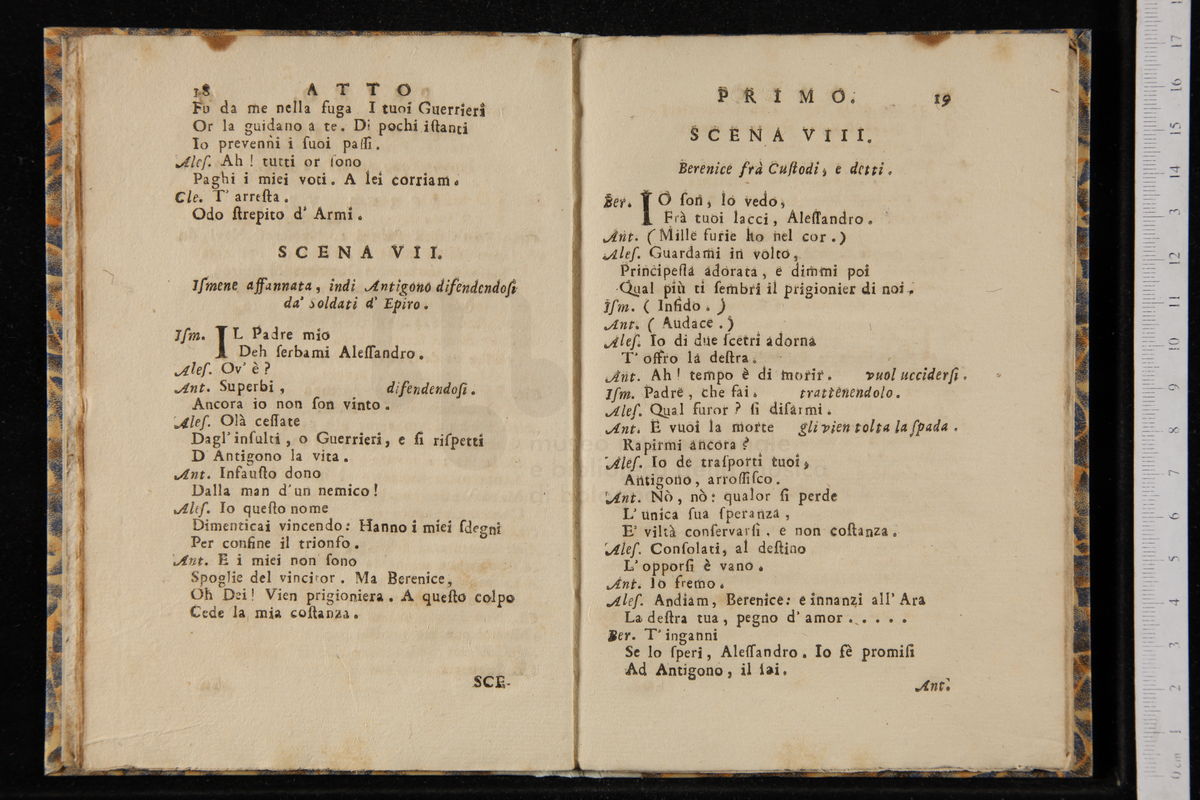 18 ATTO
Fu da me nella fuga I tuoi Guerrieri
Or la guidano a te. Di pochi iſtanti
Io prevenni i ſuoi paſſi.
Aleſ. Ah! tutti or ſono
Paghi i miei voti. A lei corriam.
Cle. T' arreſta.
Odo ſtrepito d' Armi.
SCENA VII.
Iſmene affannata, indi Antigono difendendoſi
da' Soldati d' Epiro.
Iſm. IL Padre mio
Deh ſerbami Aleſſandro.
Aleſ. Ov' è?
Ant. Superbi, difendendoſi.
Ancora io non ſon vinto.
Aleſ. Olà ceſſate
Dagl' inſulti, o Guerrieri, e ſi riſpetti
D'Antigono la vita.
Ant. Infauſto dono
Dalla man d'un nemico!
Aleſ. Io queſto nome
Dimenticai vincendo: Hanno i miei ſdegni
Per confine il trionfo.
Ant. E i miei non ſono
Spoglie del vincitor. Ma Berenice,
Oh Dei! Vien prigioniera. A queſto colpo
Cede la mia coſtanza.
SCE-
PRIMO. 19
SCENA VIII.
Berenice frà Cuſtodi, e detti.
Ber. IO ſon, lo vedo,
Frà tuoi lacci, Aleſſandro.
Ant. (Mille furie ho nel cor.)
Aleſ. Guardami in volto,
Principeſſa adorata, e dimmi poi
Qual più ti ſembri il prigionier di noi.
Iſm. (Infido.)
Ant. (Audace.)
Aleſ. Io di due ſcetri adorna
T' offro la deſtra.
Ant. Ah! tempo è di morir. vuol ucciderſi.
Iſm. Padre, che fai. trattenendolo.
Aleſ. Qual furor? ſi diſarmi.
Ant. E vuoi la morte gli vien tolta la ſpada.
Rapirmi ancora?
Aleſ. Io de traſporti tuoi,
Antigono, arroſſiſco.
Ant. Nò, nò: qualor ſi perde
L' unica ſua ſperanza,
E' viltà conſervarſi, e non coſtanza.
Aleſ. Conſolati, al deſtino
L' opporſi è vano.
Ant. Io fremo.
Aleſ. Andiam, Berenice: e innanzi all' Ara
La deſtra tua, pegno d' amor.....
Ber. T' inganni
Se lo ſperi, Aleſſandro. Io fè promiſi
Ad Antigono, il ſai.
Ant.